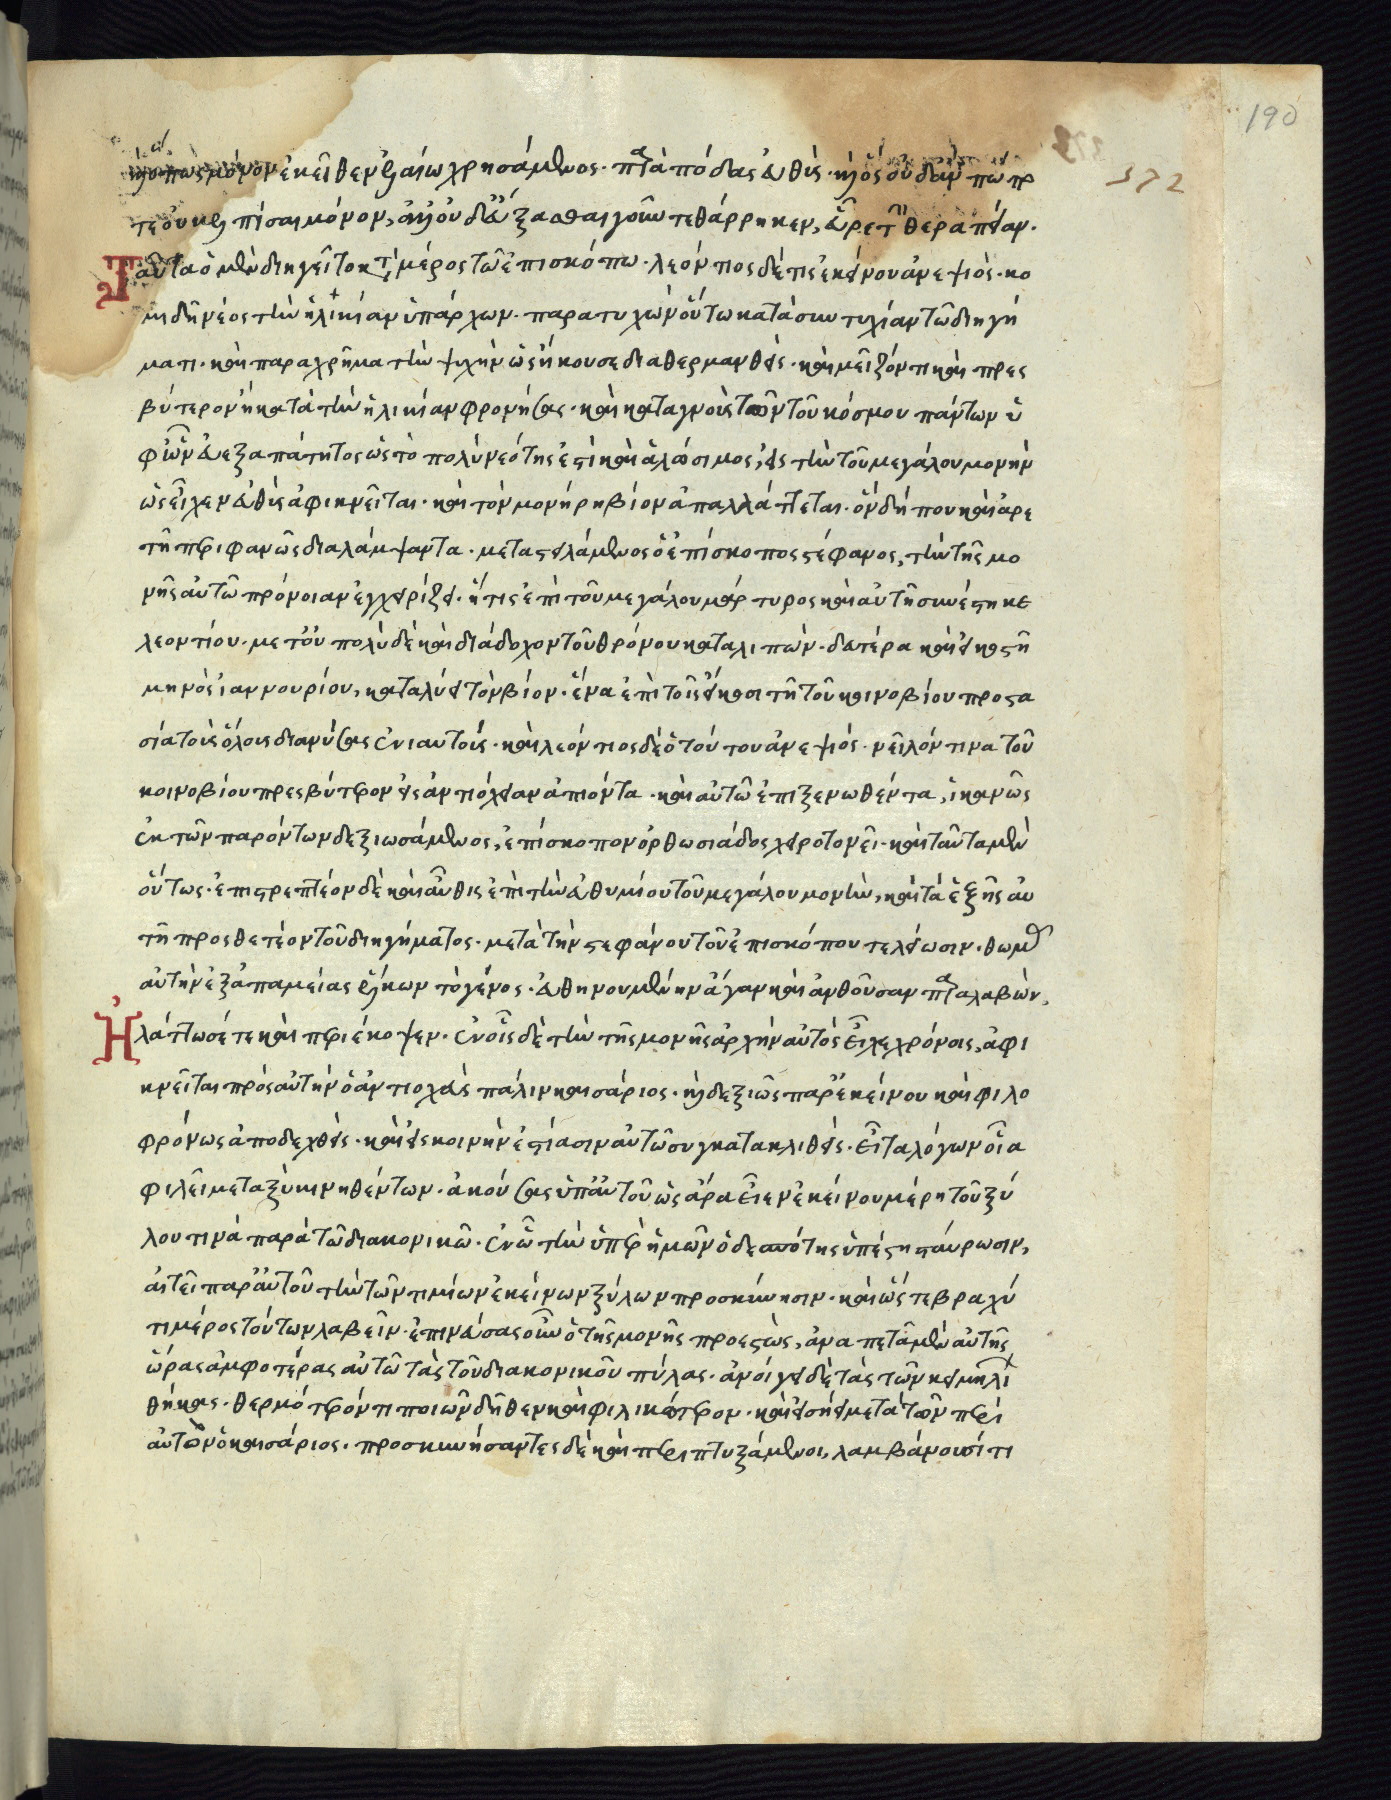 190
372
μόνον ἐκεῖθεν ἐλαίω χρησάμενος· παρὰ πόδας εὐθὺς· καὶ ὃς οὐδ' ἂν πώπο
τε οὐκ ἐλπίσαι μόνον, ἀλλ' οὐδ' εὔξασθαι γοῦν τεθάρρηκεν, εὕρετο τὴν θεραπείαν·
Ταῦτα ὁ μὲν διηγεῖτο κατὰ μέρος τῶ ἐπισκόπω· λεόντιος δέ τις ἐκείνου ἀνεψιὸς· κο
μιδῆ νέος τὴν ἡλικίαν ὑπάρχων· παρατυχὼν οὕτω κατὰ συντυχίαν τῶ διηγή
ματι· καὶ παραχρῆμα τὴν ψυχὴν ὡς ἤκουσε διαθερμανθεὶς· καὶ μεῖζόν τι καὶ πρεσ
βύτερον ἢ κατὰ τὴν ἡλικίαν φρονήσας· καὶ καταγνοὺς τῶν τοῦ κόσμου πάντων ὑ
φ' ὧν εὐεξαπάτητος ὡς τὸ πολὺ νεότης ἐστὶ καὶ ἁλώσιμος, εἰς τὴν τοῦ μεγάλου μονὴν
ὡς εἶχεν εὐθὺς ἀφικνεῖται· καὶ τὸν μονήρη βίον ἀπαλλάττεται· ὃν δήπου καὶ ἀρε
τῆ περιφανῶς διαλάμψαντα· μεταστειλάμενος ὁ ἐπίσκοπος στέφανος, τὴν τῆς μο
νῆς αὐτῶ πρόνοιαν ἐγχειρίζει· ἥτις ἐπὶ τοῦ μεγάλου μάρτυρος καὶ αὐτὴ συνέστηκε
λεοντίου· μετ' οὐ πολὺ δὲ καὶ διάδοχον τοῦ θρόνου καταλιπὼν· δευτέρα καὶ εἰκοστῆ
μηνὸς ἰαννουρίου, καταλύει τὸν βίον· ἕνα ἐπὶ τοῖς εἴκοσι τῆ τοῦ κοινοβίου προστα
σία τοὺς ὅλους διανύσας ἐνιαυτούς· καὶ λεόντιος δὲ ὁ τούτου ἀνεψιός· νεῖλόν τινα τοῦ
κοινοβίου πρεσβύτερον εἰς ἀντιόχειαν ἀπιόντα· καὶ αὐτῶ ἐπιξενωθέντα, ἱκανῶς
ἐκ τῶν παρόντων δεξιωσάμενος, ἐπίσκοπον ὀρθωσιάδος χειροτονεῖ· καὶ ταῦτα μὲν
οὕτως· ἐπιστρεπτέον δὲ καὶ αὖθις ἐπὶ τὴν εὐθυμίου τοῦ μεγάλου μονὴν, καὶ τὰ ἑξῆς αὐ
τῆ προσθετέον τοῦ διηγήματος· μετὰ τὴν στεφάνου τοῦ ἐπισκόπου τελείωσιν· θωμᾶς
αὐτὴν ἐξ ἀπαμείας ἕλκων τὸ γένος· εὐθηνουμένην ἄγαν καὶ ἀνθοῦσαν παραλαβὼν,
Ἠλάττωσέ τε καὶ περιέκοψεν· ἐν οἷς δὲ τὴν τῆς μονῆς ἀρχὴν αὐτὸς εἶχε χρόνοις, ἀφι
κνεῖται πρὸς αὐτὴν ὁ ἀντιοχεὺς πάλιν καισάριος· καὶ δεξιῶς παρ' ἐκείνου καὶ φιλο
φρόνως ἀποδεχθεὶς· καὶ εἰς κοινὴν ἑστίασιν αὐτῶ συγκατακλιθεὶς· εἶτα λόγων οἷα
φιλεῖ μεταξὺ κινηθέντων· ἀκούσας ὑπ' αὐτοῦ ὡς ἄρα εἶεν ἐκείνου μέρη τοῦ ξύ
λου τινὰ παρὰ τῶ διακονικῶ· ἐν ὧ τὴν ὑπὲρ ἡμῶν ὁ δεσπότης ὑπέστη σταύρωσιν,
αἰτεῖ παρ' αὐτοῦ τὴν τῶν τιμίων ἐκείνων ξύλων προσκύνησιν· καὶ ὥστε βραχύ
τι μέρος τούτων λαβεῖν· ἐπινεύσας οὖν ὁ τῆς μονῆς προεστὼς, ἀναπετάννυσιν αὐτῆς
ὥρας ἀμφοτέρας αὐτῶ τὰς τοῦ διακονικοῦ πύλας· ἀνοίγει δὲ τὰς τῶν κειμηλί
θήκας· θερμότερόν τι ποιῶν δῆθεν καὶ φιλικώτερον· καὶ εἰσήει μετὰ τῶν περὶ
αὐτῶν ὁ καισάριος· προσκυνήσαντες δὲ καὶ περιπτυξάμενοι, λαμβάνουσί τι